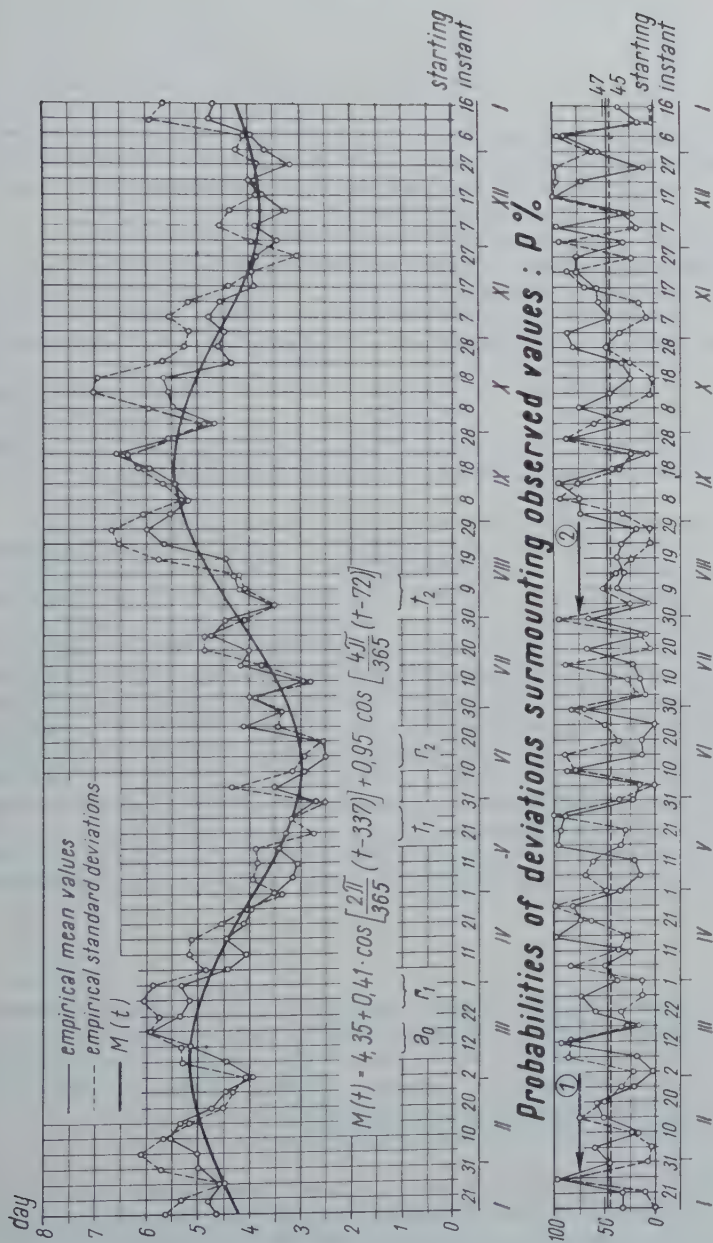 day
8
7
6
5
4
3
2
1
0
empirical mean values
empirical standard deviations
M(t)
M(t) = 4,35 + 0,41 · cos [2π/365 (t-337)] + 0,95 cos [4π/365 (t-72)]
a₀ r₁ t₁ r₂ t₂
starting
instant
21 31 10 20 2 12 22 1 11 21 1 11 21 31 10 20 30 10 20 30 9 19 29 8 18 28 8 18 28 7 17 27 7 17 27 6 16
I II III IV V VI VII VIII IX X XI XII I
Probabilities of deviations surmounting observed values : p%
100
50
0
① ②
47
45
starting
instant
21 31 10 20 2 12 22 1 11 21 1 11 21 31 10 20 30 10 20 30 9 19 29 8 18 28 8 18 28 7 17 27 7 17 27 6 16
I II III IV V VI VII VIII IX X XI XII I